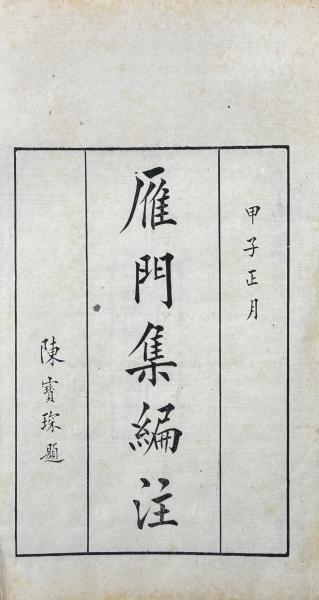 甲子正月
雁門集編注
陳寶琛題